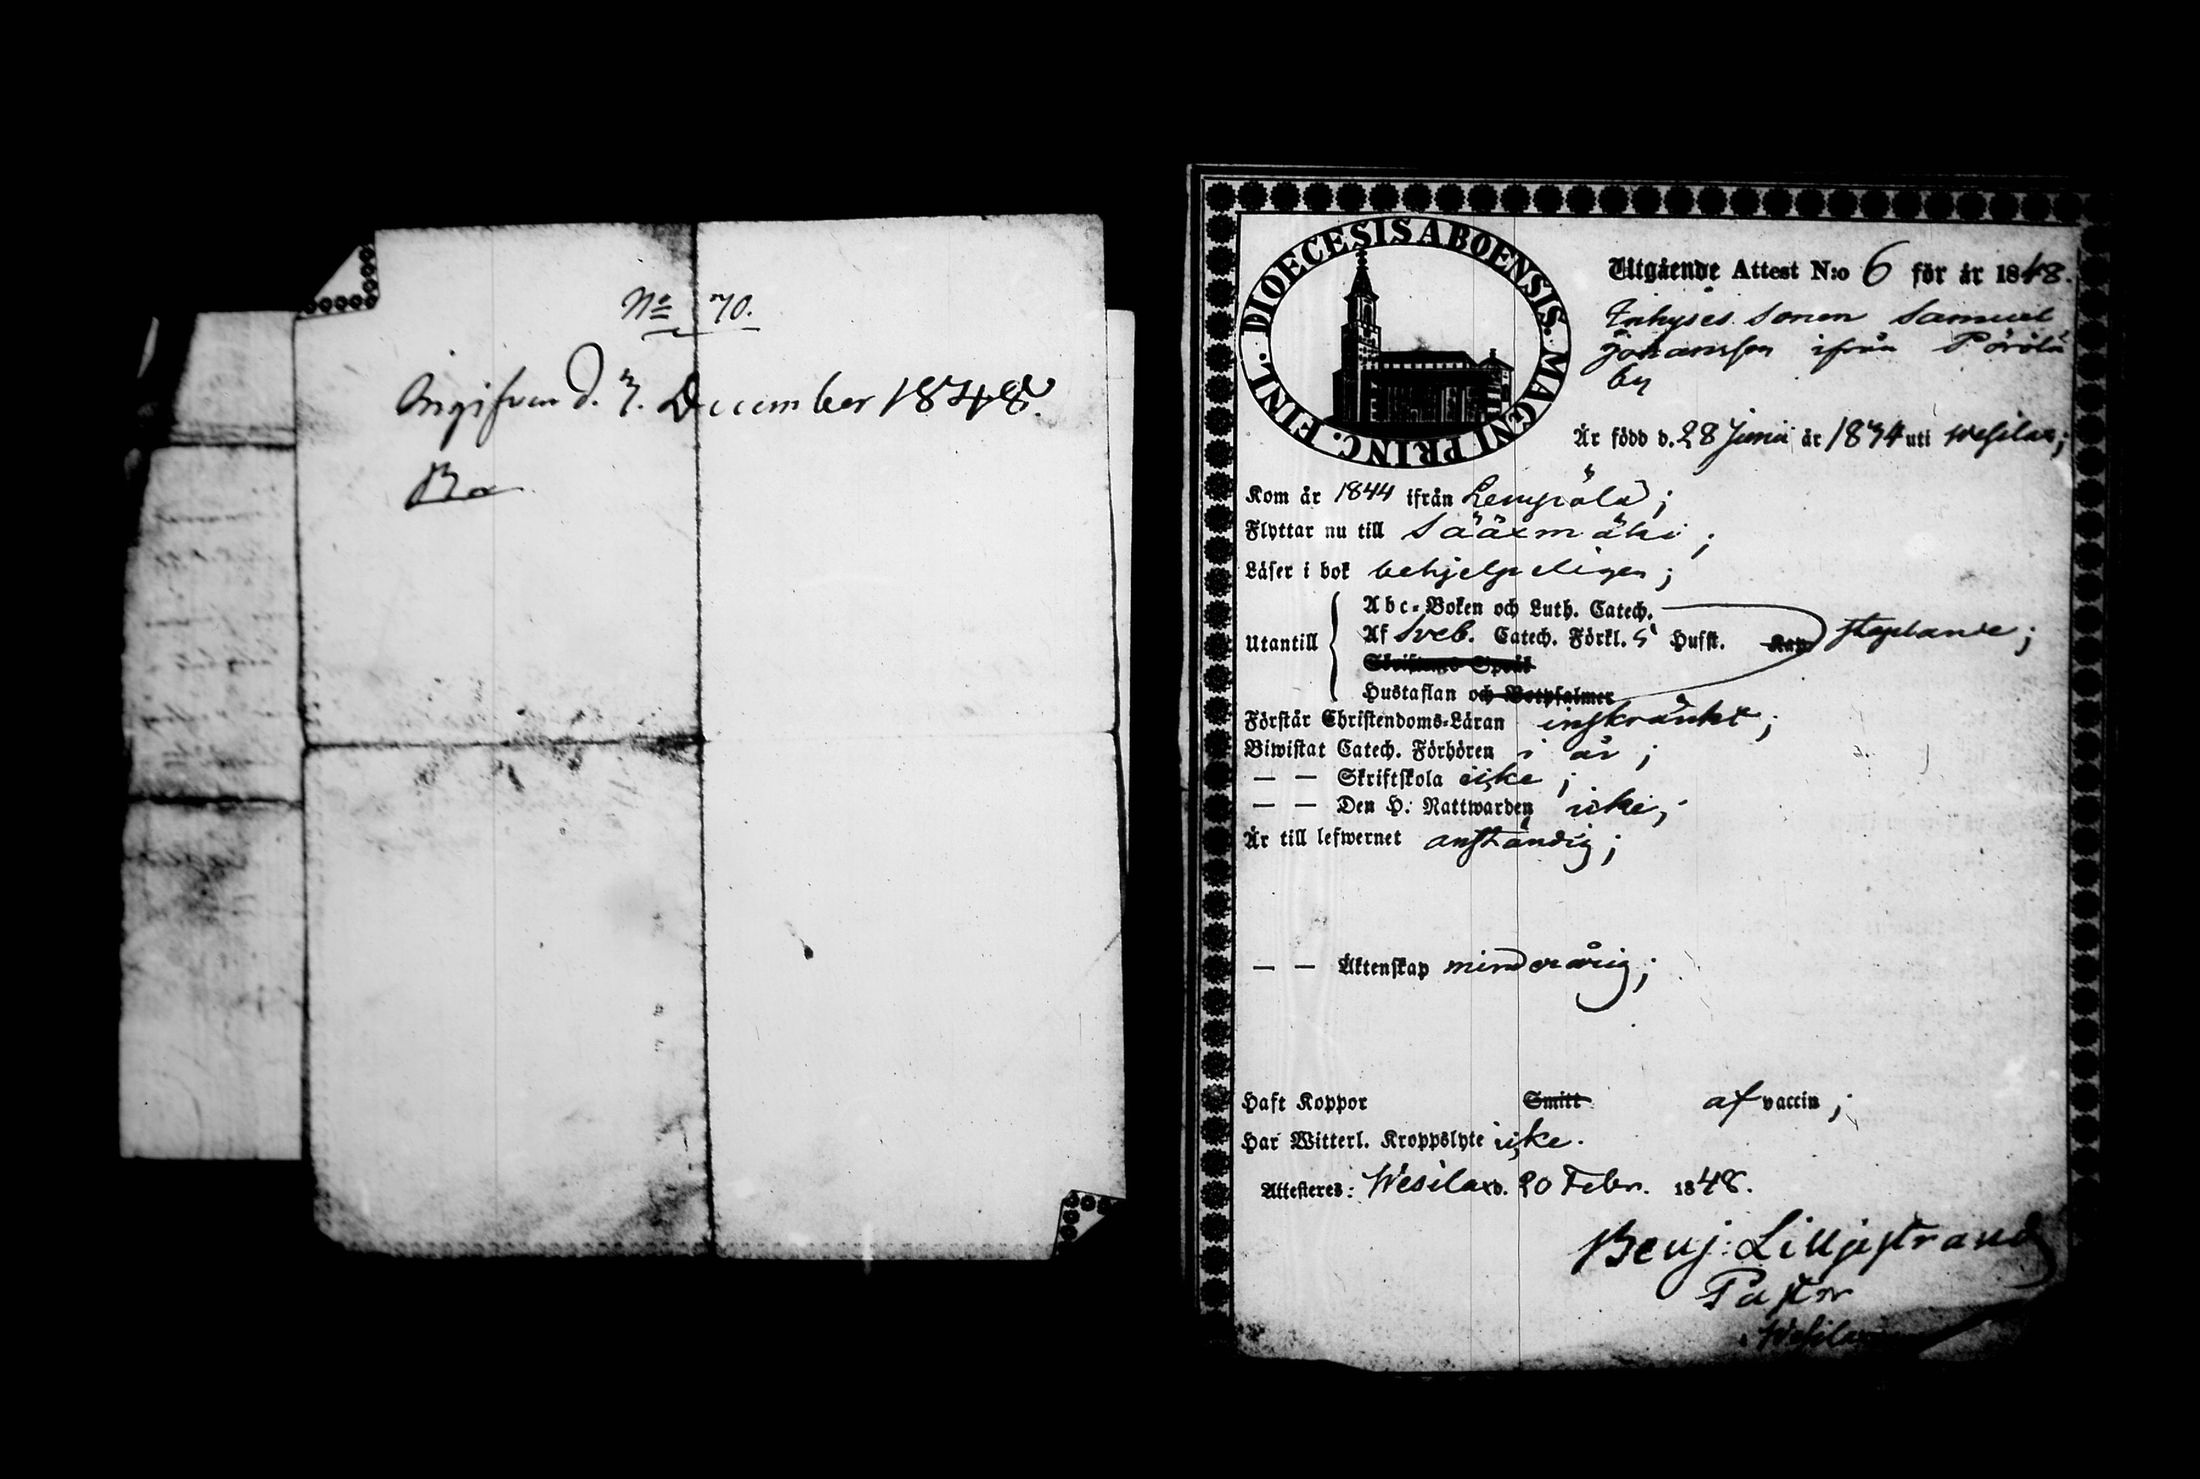 No 70.
Angifven d. 7. December 1848.
DIOECESIS ABOENSIS. MAGNI PRINC. FINL.
Utgående Attest N:o 6 för år 1848.
Inhyses Sonen Samuel
Johansson ifrån Pörölä
by
Är född d. 28 Junii år 1834 uti Wesilax;
Kom år 1844 ifrån Lempälä;
Flyttar nu till Sääxmäki;
Läser i bok behjelpeligen;
Utantill
Abc-Boken och Luth. Catech.
Af Sveb. Catech. Förkl. 5 Hufst. Kap staplande;
Skriftens Språk
Hustaflan och Botpsalmer
Förstår Christendoms-Läran inskränkt;
Biwistat Catech. Förhören i år;
— — Skriftskola icke;
— — Den H. Nattwarden icke;
Är till lefwernet anständig;
— — Äktenskap minderårig;
Haft Koppor Smitt af vaccin;
Har Witterl. Kroppslyte icke.
Attesteres: Wesilax d. 20 Febr. 1848.
Benj: Lilljestrand
Pastor
Wesilax